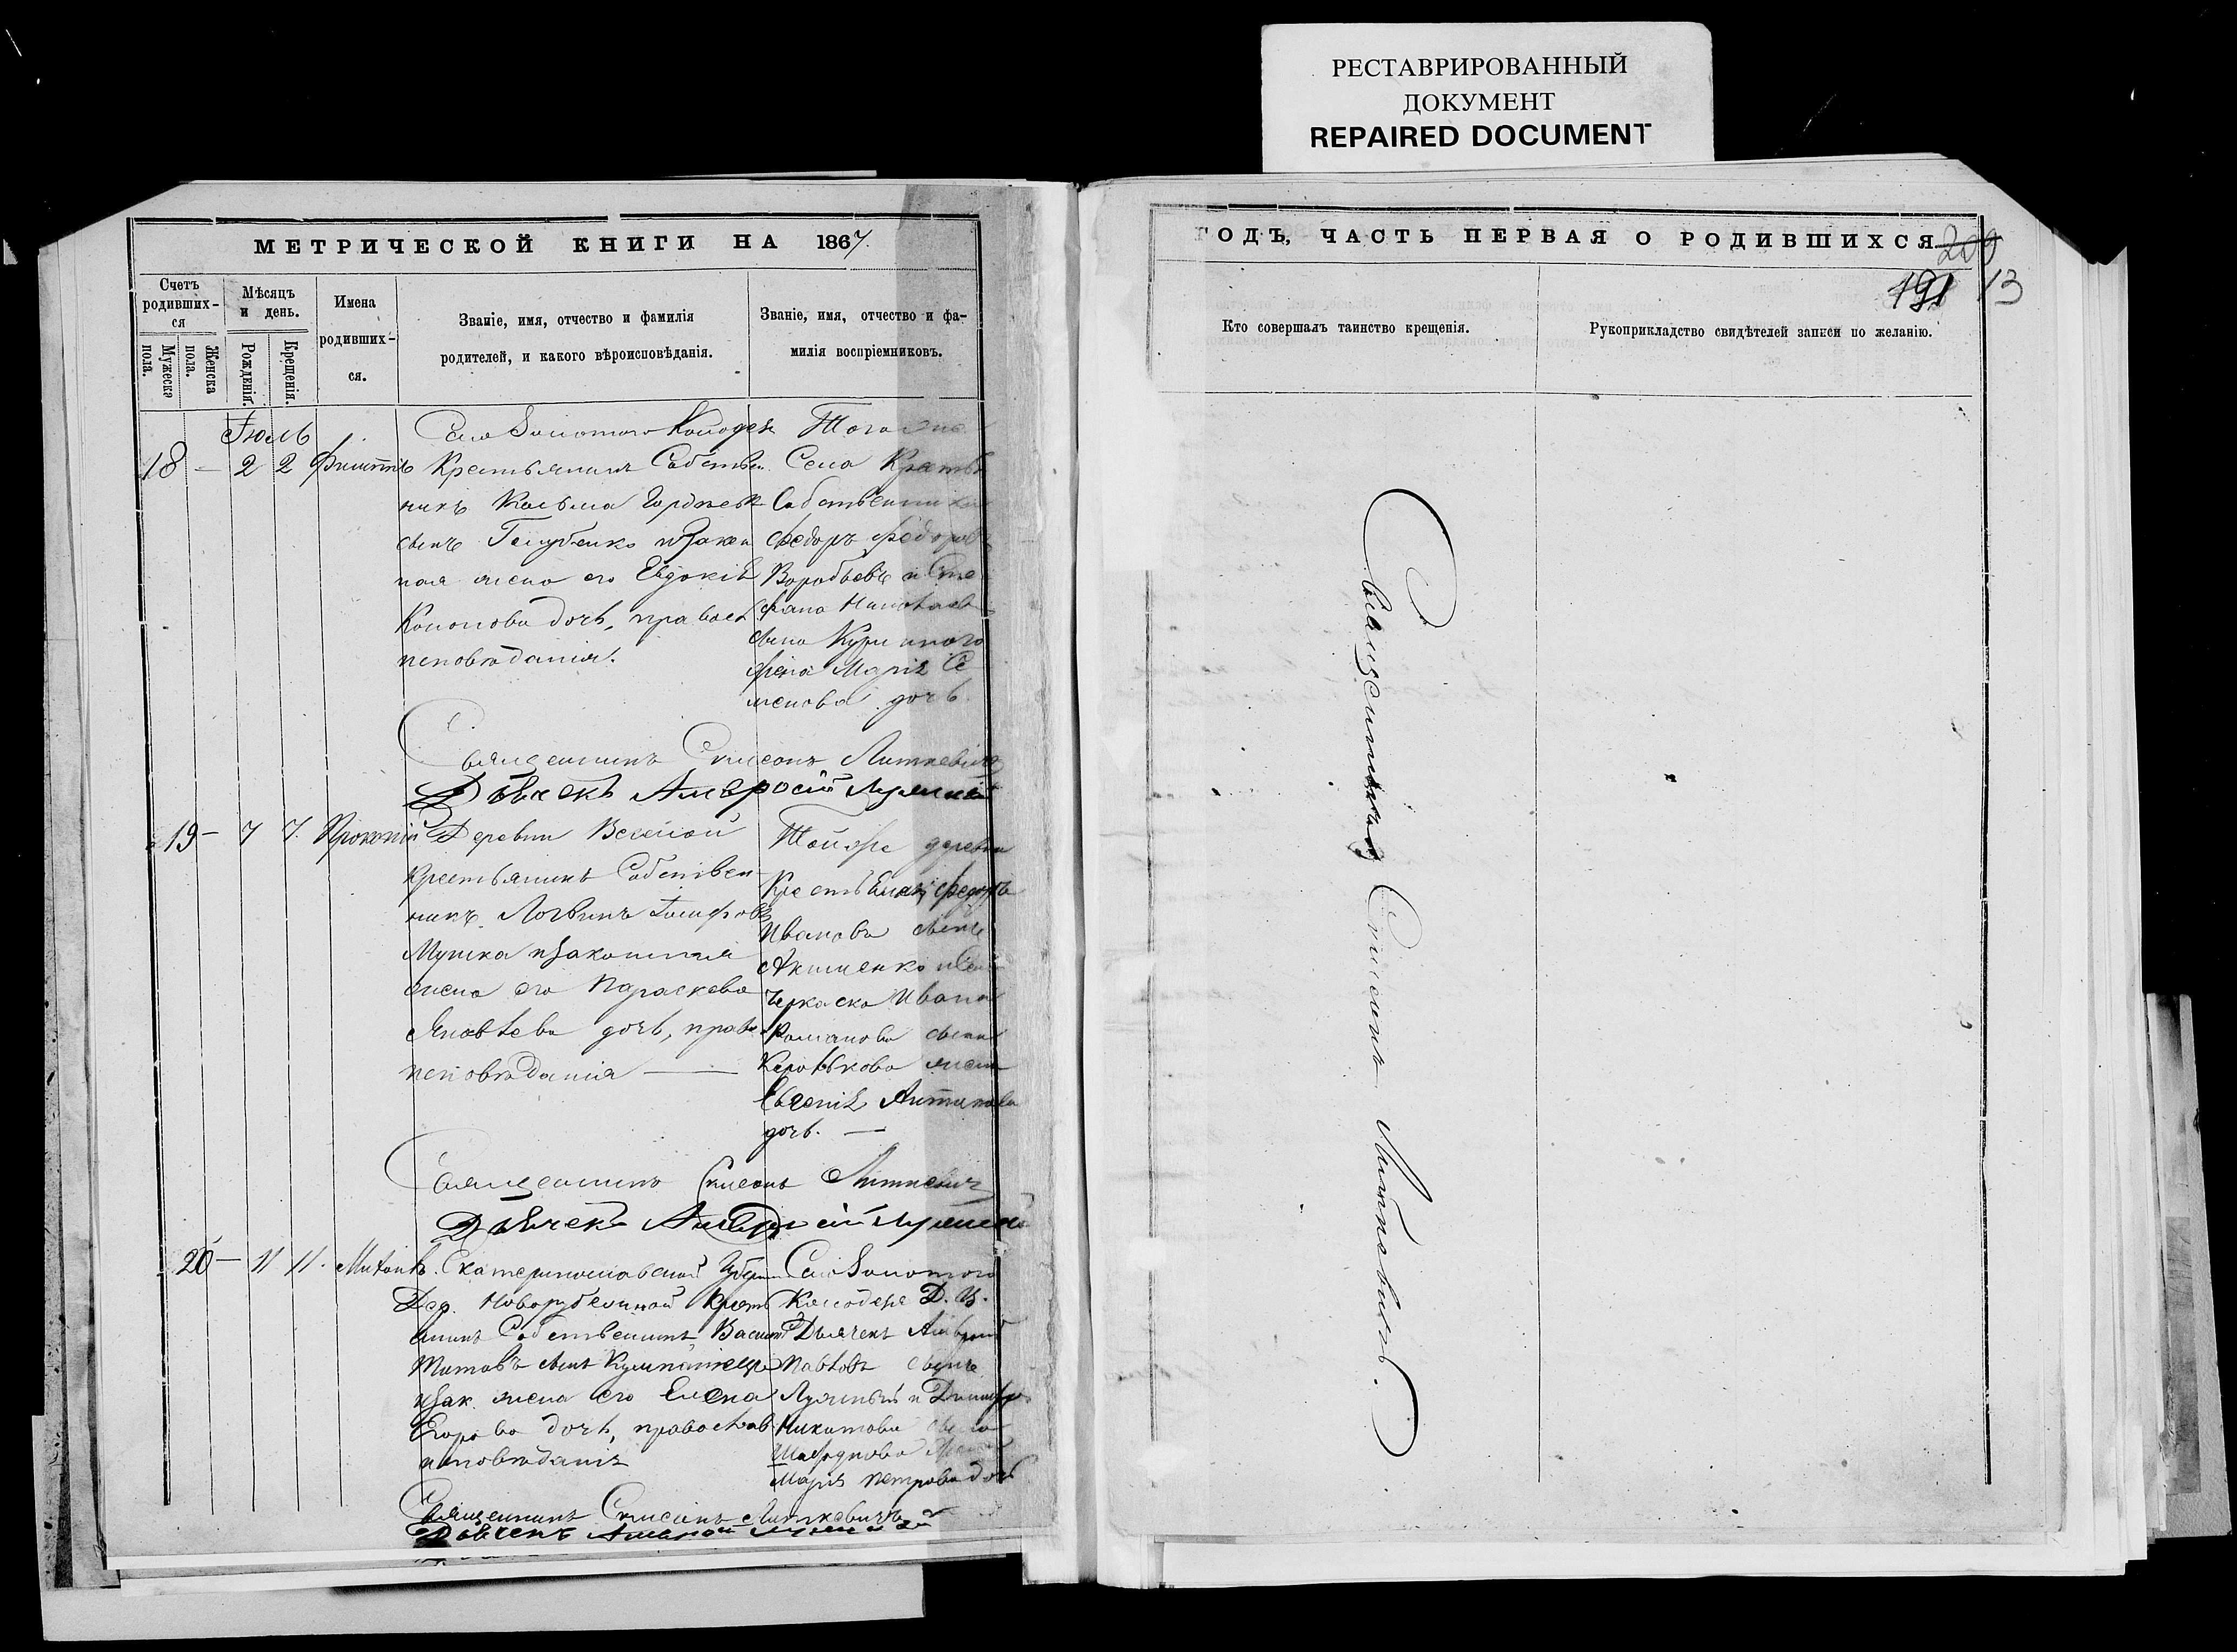 РЕСТАВРИРОВАННЫЙ
ДОКУМЕНТ
REPAIRED DOCUMENT
МЕТРИЧЕСКОЙ КНИГИ НА 1867.
Счетъ родивших-ся
Мужеска пола.
Женска пола.
Мѣсяцъ и день.
Рожденія.
Крещенія.
Имена родивших-ся.
Званіе, имя, отчество и фамилія
родителей, и какого вѣроисповѣданія.
Званіе, имя, отчество и фа-
милія воспріемниковъ.
Іюль
18 — 2 2 Филиппъ
Село Золотого Колодезя
Крестьянинъ Собствен
никъ Козьма Гордѣевъ
сынъ Голубенко и Закон
ная жена его Евдокія
Кононова дочь, правосл
исповѣданія.
Того же
Села Крестья
Собственники
Федоръ Федоровъ
Воробьевъ и Сте
фана Николаева
сына
жена Марія Се
менова дочь.
Священникъ Симеонъ Литкевичъ
Дьячекъ Амвросій
19 — 7 7. Прокопій
Деревни Веселой
Крестьянинъ Собствен
никъ Логвинъ
Мушка и Законная
жена его Параскева
Яковлева дочь, правос
исповѣданія —
Той же деревни
Крестьянинъ Федоръ
Иванова сынъ
Акименко и
Черкаска Ивана
Романова сына
Королькова жена
Евгенія Антонова
дочь. —
Священникъ Симеонъ Литкевичъ
Дьячекъ Амвросій
20 — 11 11. Михаилъ.
Екатеринославской Губерніи
Дер. Крестья
янинъ Собственникъ Василій
Титовъ сынъ
и Зак. жена его Елена
Егорова дочь, православ
исповѣданія
Село Золотого
Колодезя Д. Ц.
Дьячекъ Амвросій
Павловъ сынъ
и Димитрія
Никитова сына
жена
Марія Петрова дочь
Священникъ Симеонъ Литкевичъ
Дьячекъ Амвросій
ГОДЪ, ЧАСТЬ ПЕРВАЯ О РОДИВШИХСЯ
200
191 13
Кто совершалъ таинство крещенія.
Рукоприкладство свидѣтелей записи по желанію.
Священникъ Симеонъ Литкевичъ.